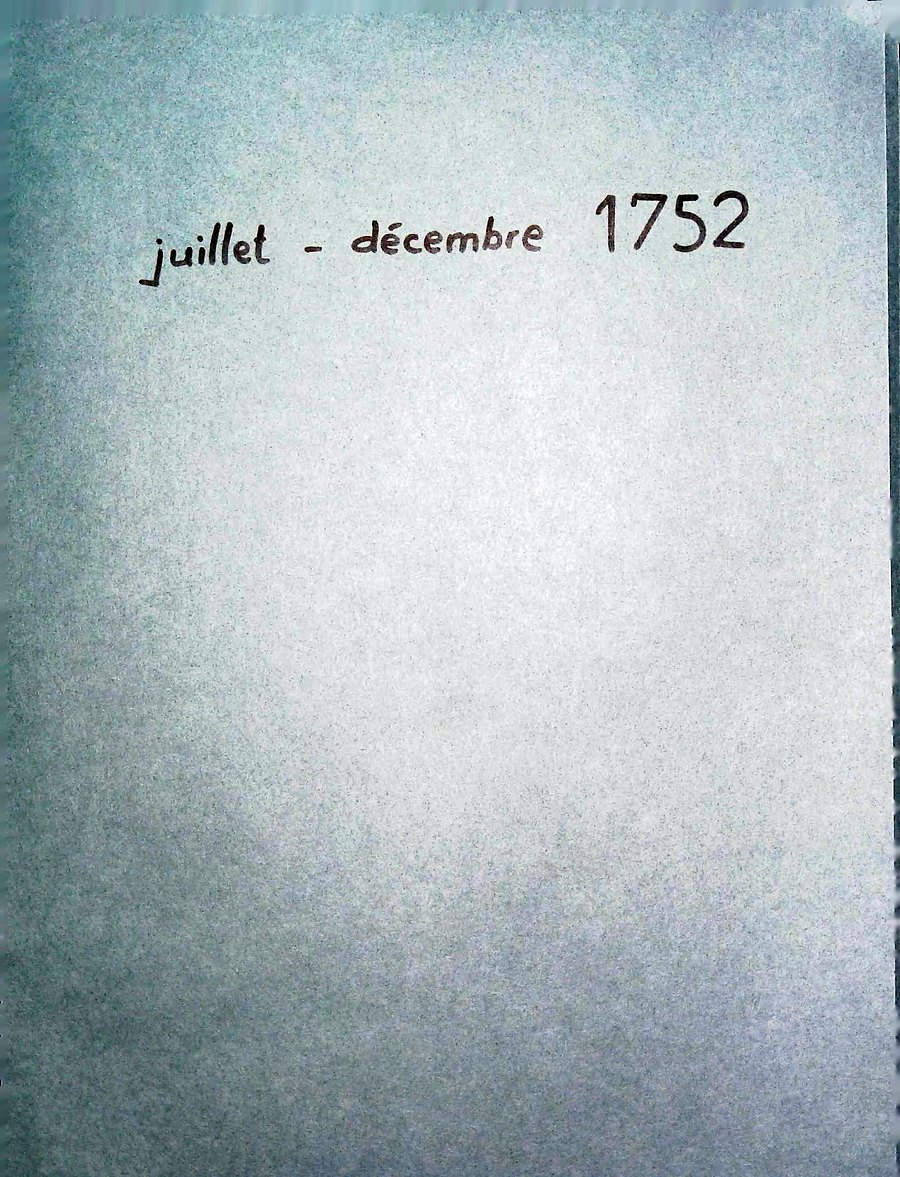 juillet - décembre 1752